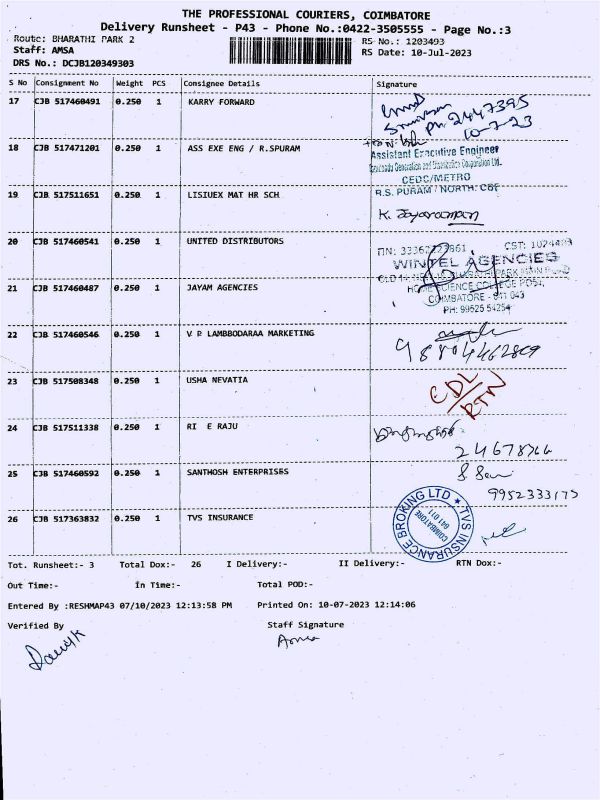 THE PROFESSIONAL COURIERS, COIMBATORE
Delivery Runsheet - P43 - Phone No.:0422-3505555 - Page No.:3
Route: BHARATHI PARK 2 RS No.: 1203493
Staff: AMSA RS Date: 10-Jul-2023
DRS No.: DCJB120349303
S No Consignment No Weight PCS Consignee Details Signature
17 CJB 517460491 0.250 1 KARRY FORWARD
Ph 2447395
10-7-23
18 CJB 517471201 0.250 1 ASS EXE ENG / R.SPURAM
Assistant Executive Engineer
CEDC/METRO
R.S. PURAM / NORTH. CBE
19 CJB 517511651 0.250 1 LISIUEX MAT HR SCH
K. Jayaraman
20 CJB 517460541 0.250 1 UNITED DISTRIBUTORS
WINTEL AGENCIES
HOME SCIENCE COLLEGE POST,
COIMBATORE - 641 043
PH: 99525 54254
21 CJB 517460487 0.250 1 JAYAM AGENCIES
22 CJB 517460546 0.250 1 V P LAMBBODARAA MARKETING
98804462809
23 CJB 517508348 0.250 1 USHA NEVATIA
CDL/RTN
24 CJB 517511338 0.250 1 RI E RAJU
24678266
25 CJB 517460592 0.250 1 SANTHOSH ENTERPRISES
9952333175
26 CJB 517363832 0.250 1 TVS INSURANCE
TVS INSURANCE BROKING LTD
COIMBATORE
641 011
Tot. Runsheet:- 3 Total Dox:- 26 I Delivery:- II Delivery:- RTN Dox:-
Out Time:- In Time:- Total POD:-
Entered By :RESHMAP43 07/10/2023 12:13:58 PM Printed On: 10-07-2023 12:14:06
Verified By Staff Signature